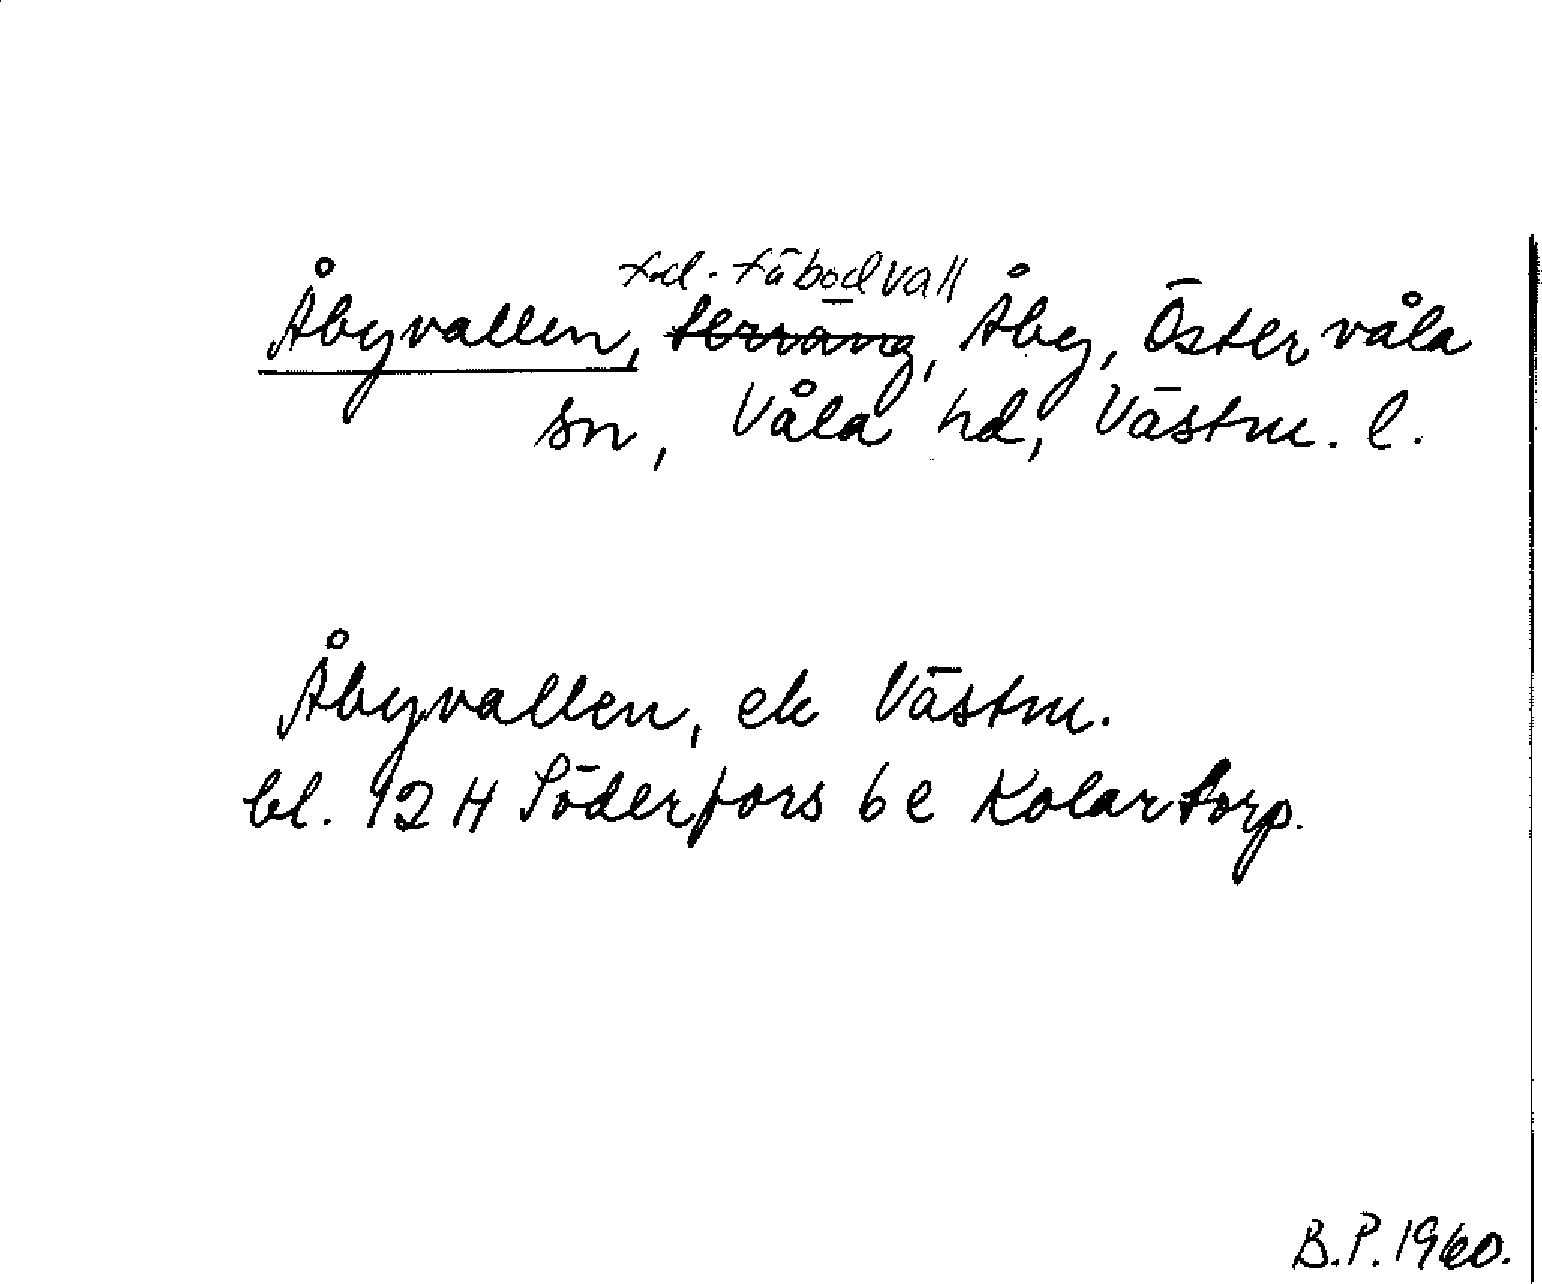 fd. fäbodvall
Åbyvallen, terräng, Åby, Östervåla
sn, Våla hd, Västm. l.
Åbyvallen, ek Västm.
bl. 12 H Söderfors 6 e Kolartorp.
B.P. 1960.